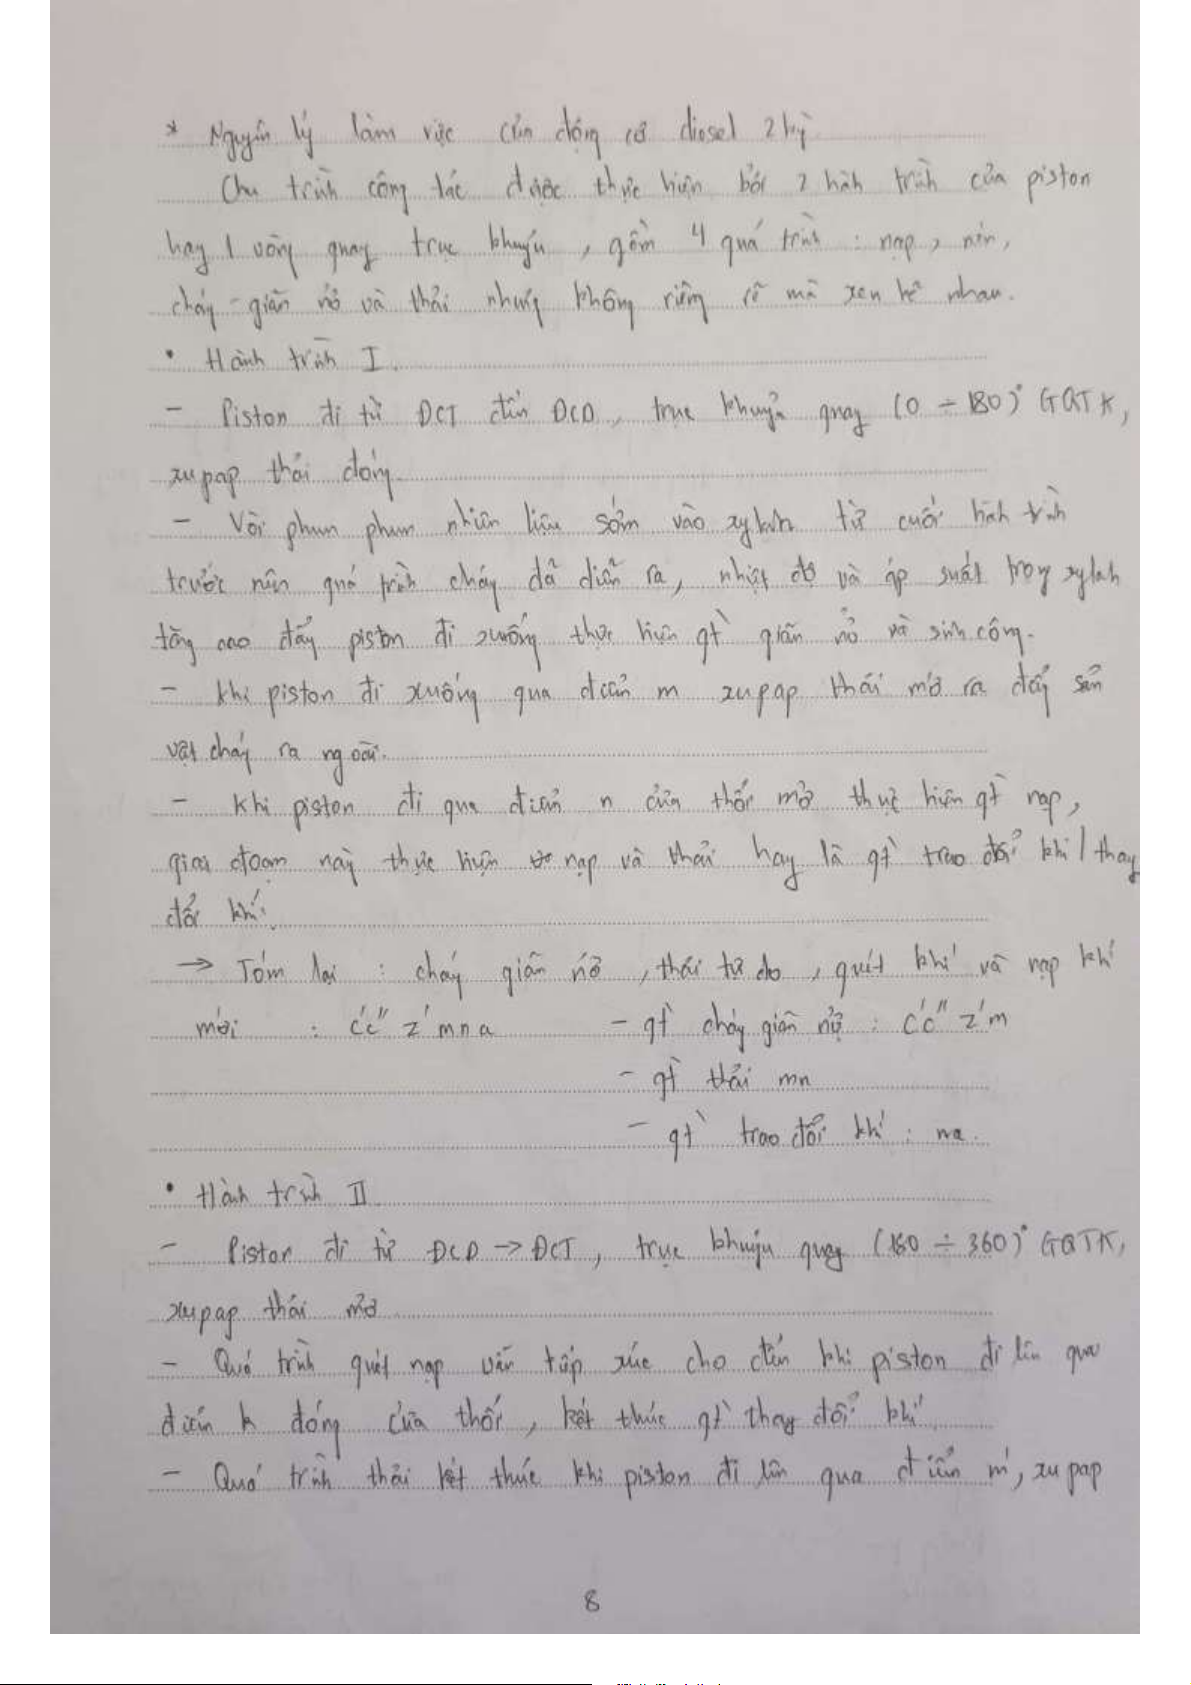 * Nguyên lý làm việc của động cơ diesel 2 kỳ
Chu trình công tác được thực hiện bởi 2 hành trình của piston
hay 1 vòng quay trục khuỷu, gồm 4 quá trình : nạp, nén,
cháy - giãn nở và thải nhưng không riêng rẽ mà xen kẽ nhau.
• Hành trình I.
- Piston đi từ ĐCT đến ĐCD, trục khuỷu quay (0 ÷ 180)° GQTK,
xupap thải đóng.
- Vòi phun phun nhiên liệu sớm vào xylanh từ cuối hành trình
trước nên quá trình cháy đã diễn ra, nhiệt độ và áp suất trong xylanh
tăng cao đẩy piston đi xuống thực hiện qt̀ giãn nở và sinh công.
- Khi piston đi xuống qua điểm m xupap thải mở ra đẩy sản
vật cháy ra ngoài.
- Khi piston đi qua điểm n cửa thổi mở thực hiện qt̀ nạp,
giai đoạn này thực hiện nạp và thải hay là qt̀ trao đổi khí / thay
đổi khí.
→ Tóm lại : cháy giãn nở, thải tự do, quét khí và nạp khí
mới : c'c" z'mna - qt̀ cháy giãn nở : c'c" z'm
- qt̀ thải mn
- qt̀ trao đổi khí : na.
• Hành trình II.
- Piston đi từ ĐCD → ĐCT, trục khuỷu quay (180 ÷ 360)° GQTK,
xupap thải mở
- Quá trình quét nạp vẫn tiếp xúc cho đến khi piston đi lên qua
điểm k đóng cửa thổi, kết thúc qt̀ thay đổi khí.
- Quá trình thải kết thúc khi piston đi lên qua điểm m', xupap
8